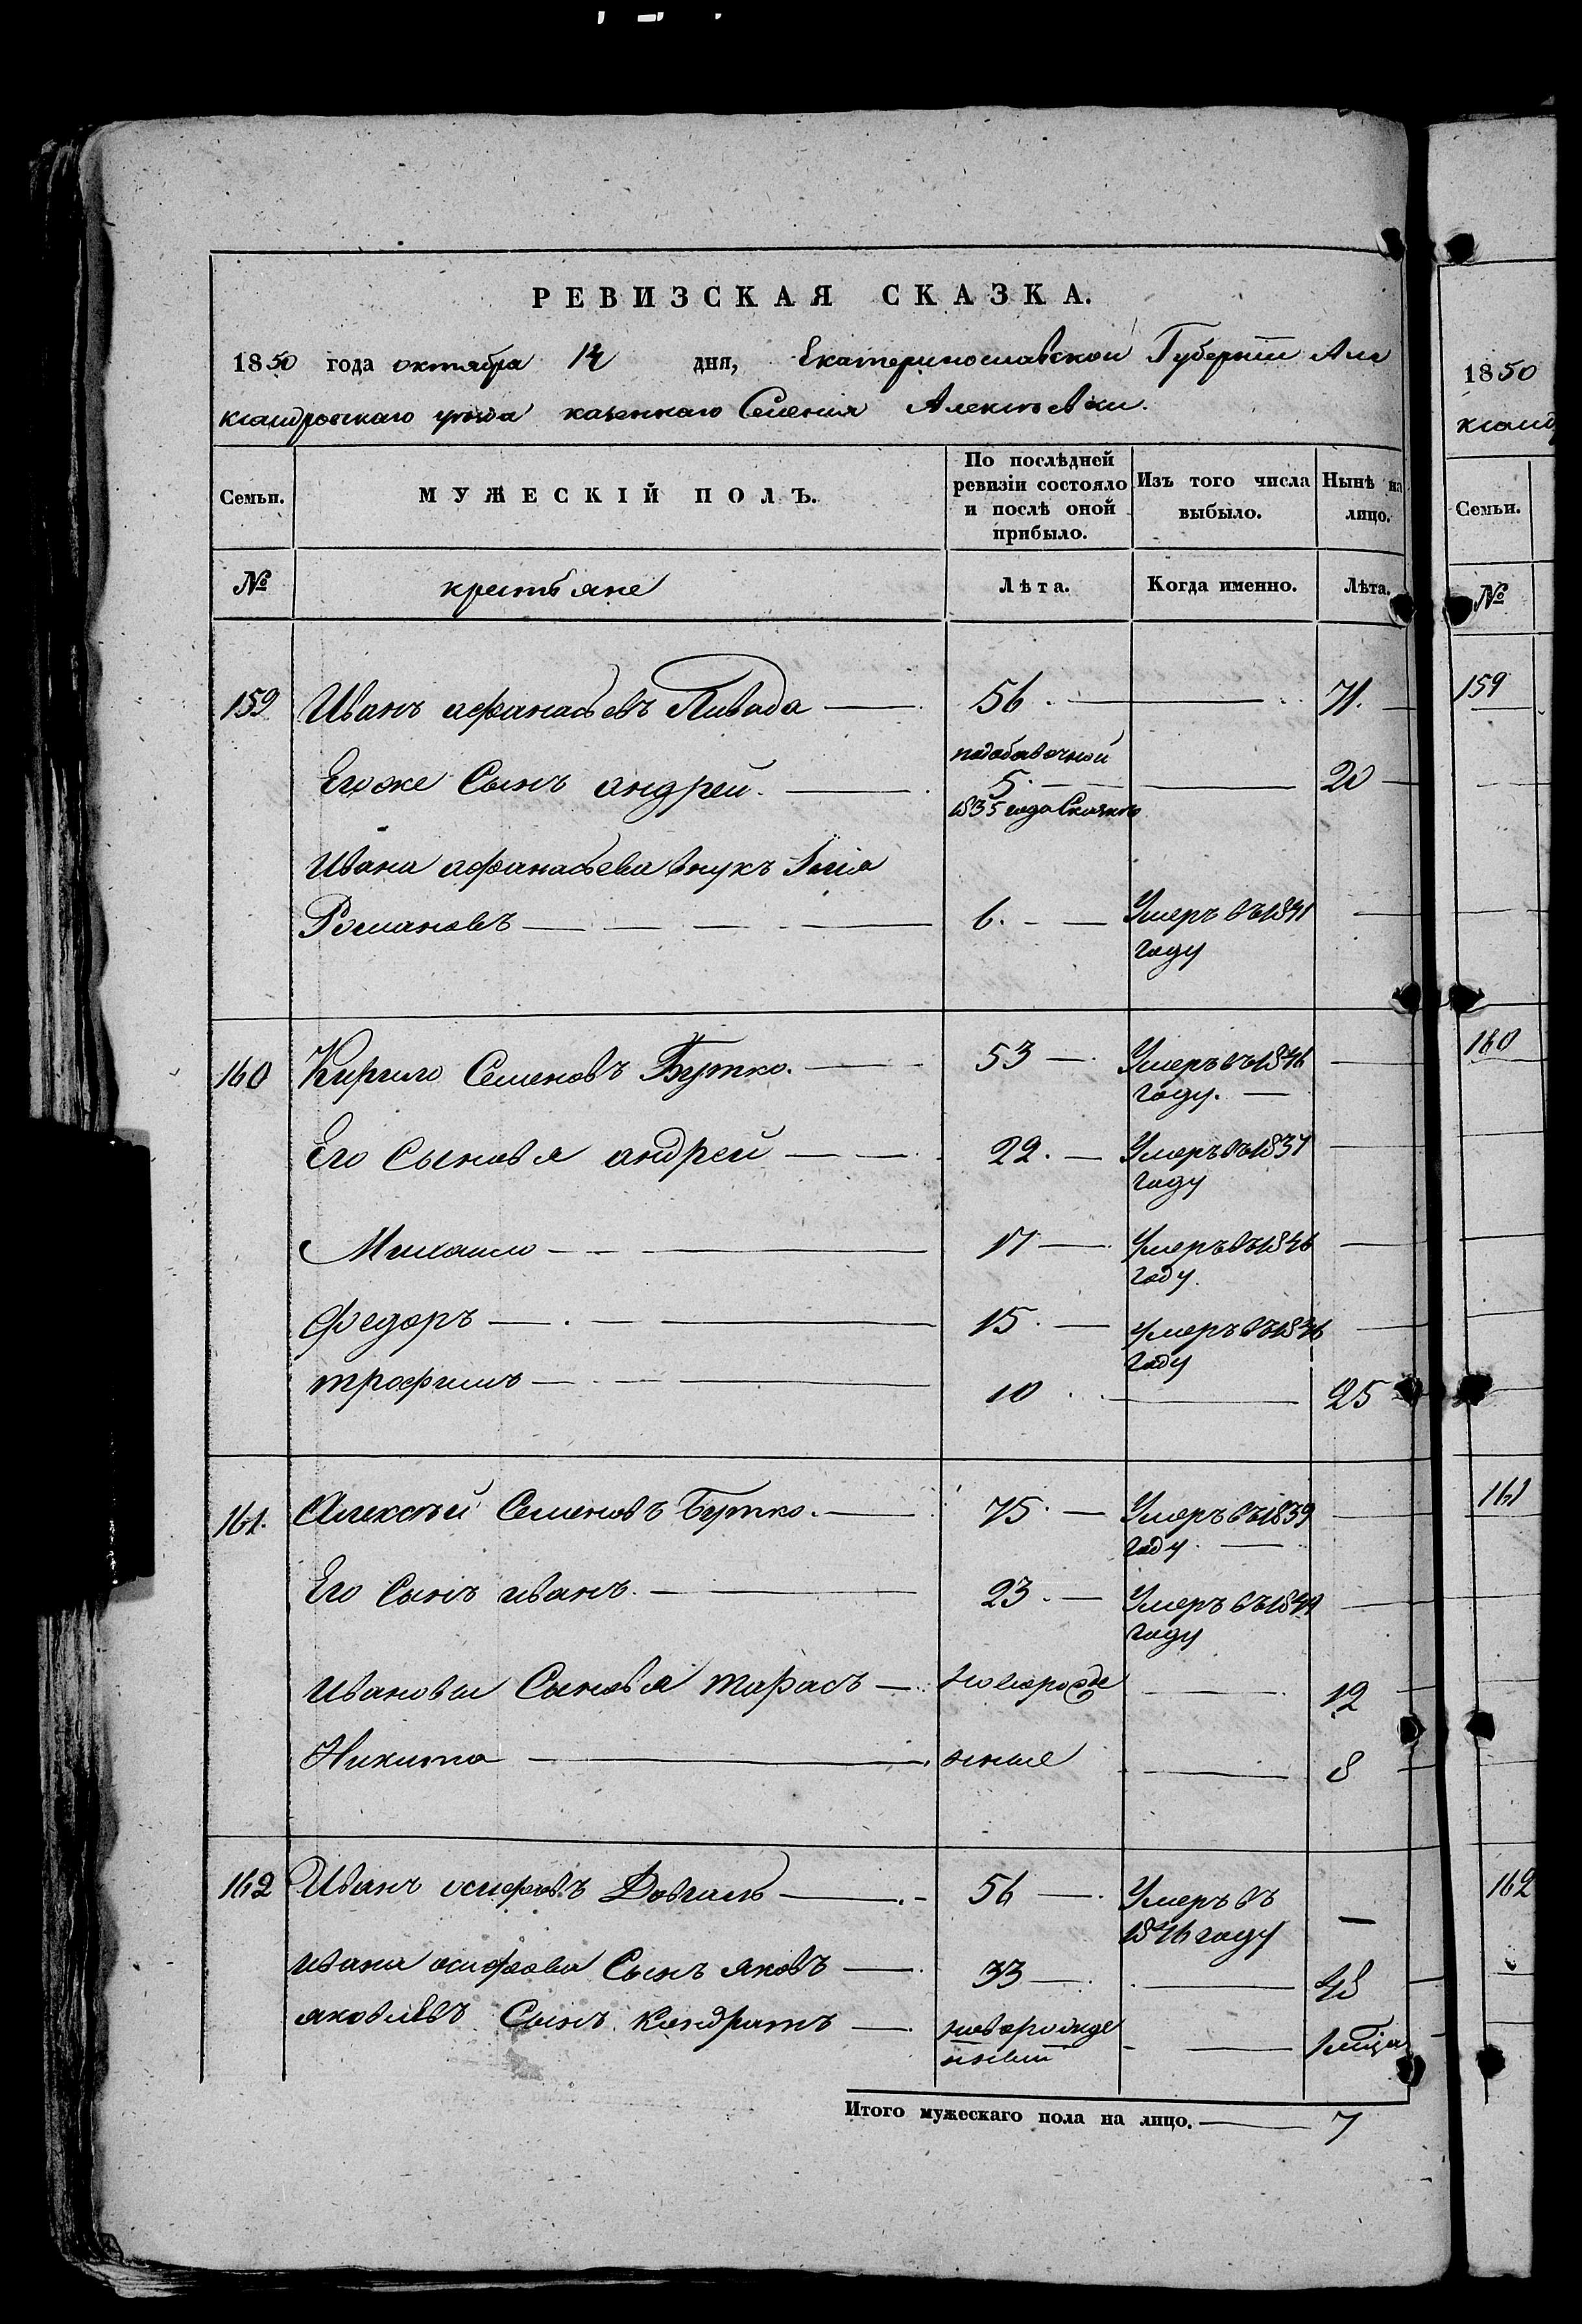 РЕВИЗСКАЯ СКАЗКА.
1850 года октября дня, Екатеринославской Губернiи Але
ксандровскаго уѣзда казеннаго Селенiя Алексѣевки.
Семьи. МУЖЕСКІЙ ПОЛЪ. По послѣдней ревизіи состояло и послѣ оной прибыло. Изъ того числа выбыло. Нынѣ на лицо.
№ крестьяне Лѣта. Когда именно. Лѣта.
159 Иванъ афанасьевъ Пивада 56 71.
Егоже Сынъ андрей. подобавочной 5. 1835 года Сказкѣ 20
Ивана афанасьева внукъ
Романовъ 6. Умеръ въ 1841 году
160 Кирило Семеновъ Бутко. 53 Умеръ въ 1846 году.
Его Сыновья андрей 22. Умеръ въ 1837 году
Михаило 17 Умеръ въ 1846 году.
федоръ 15. Умеръ въ году
трофимъ 10 25
161. Алексѣй Семеновъ Бутко. 75. Умеръ въ 1839 году.
Его Сынъ иванъ. 23. Умеръ въ году
Ивановы Сыновья тарасъ новорожде 12
Никита нные 8
162 Иванъ осиповъ Довгаль 56 Умеръ въ 1846 году
ивана осипова Сынъ яковъ 33 48
яковлевъ Сынъ Кондратъ новорожде нный 1 мѣсяца
Итого мужескаго пола на лицо. 7
1850
ксанд
Семьи.
№
159
160
161
162